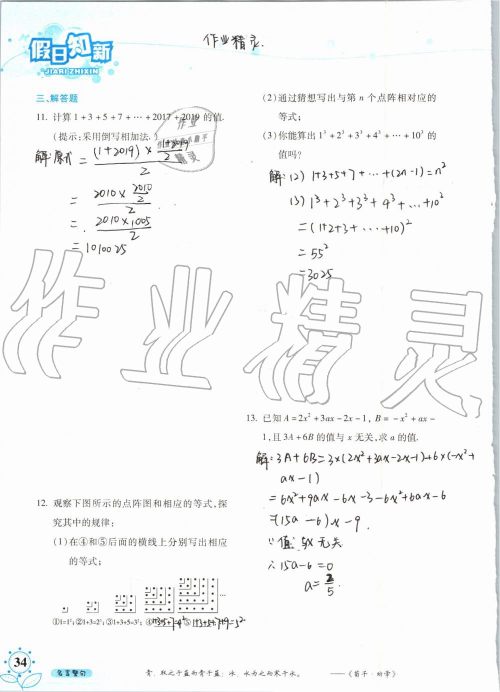 作业精灵.
假日知新
JIARI ZHIXIN
三、解答题
11. 计算1+3+5+7+…+2017+2019的值.
(提示:采用倒写相加法.)
解:原式=(1+2019)×(1+2019)/2/2
=2010×2010/2/2
=2010×1005/2
=1010025
12. 观察下图所示的点阵图和相应的等式,探
究其中的规律;
(1)在④和⑤后面的横线上分别写出相应
的等式;
①1=1²; ②1+3=2²; ③1+3+5=3²; ④1+3+5+7=4² ⑤1+3+5+7+9=5²
(2)通过猜想写出与第n个点阵相对应的
等式;
(3)你能算出1³+2³+3³+4³+…+10³的
值吗?
解:(2) 1+3+5+7+…+(2n-1)=n²
(3) 1³+2³+3³+4³+…+10³
=(1+2+3+…+10)²
=55²
=3025
13. 已知A=2x²+3ax-2x-1, B=-x²+ax-
1,且3A+6B的值与x无关,求a的值.
解:3A+6B=3×(2x²+3ax-2x-1)+6×(-x²+
ax-1)
=6x²+9ax-6x-3-6x²+6ax-6
=(15a-6)x-9.
∵值与x无关
∴15a-6=0
a=2/5.
作业精灵
34
名言警句
青,取之于蓝而青于蓝;冰,水为之而寒于水。
——《荀子·劝学》